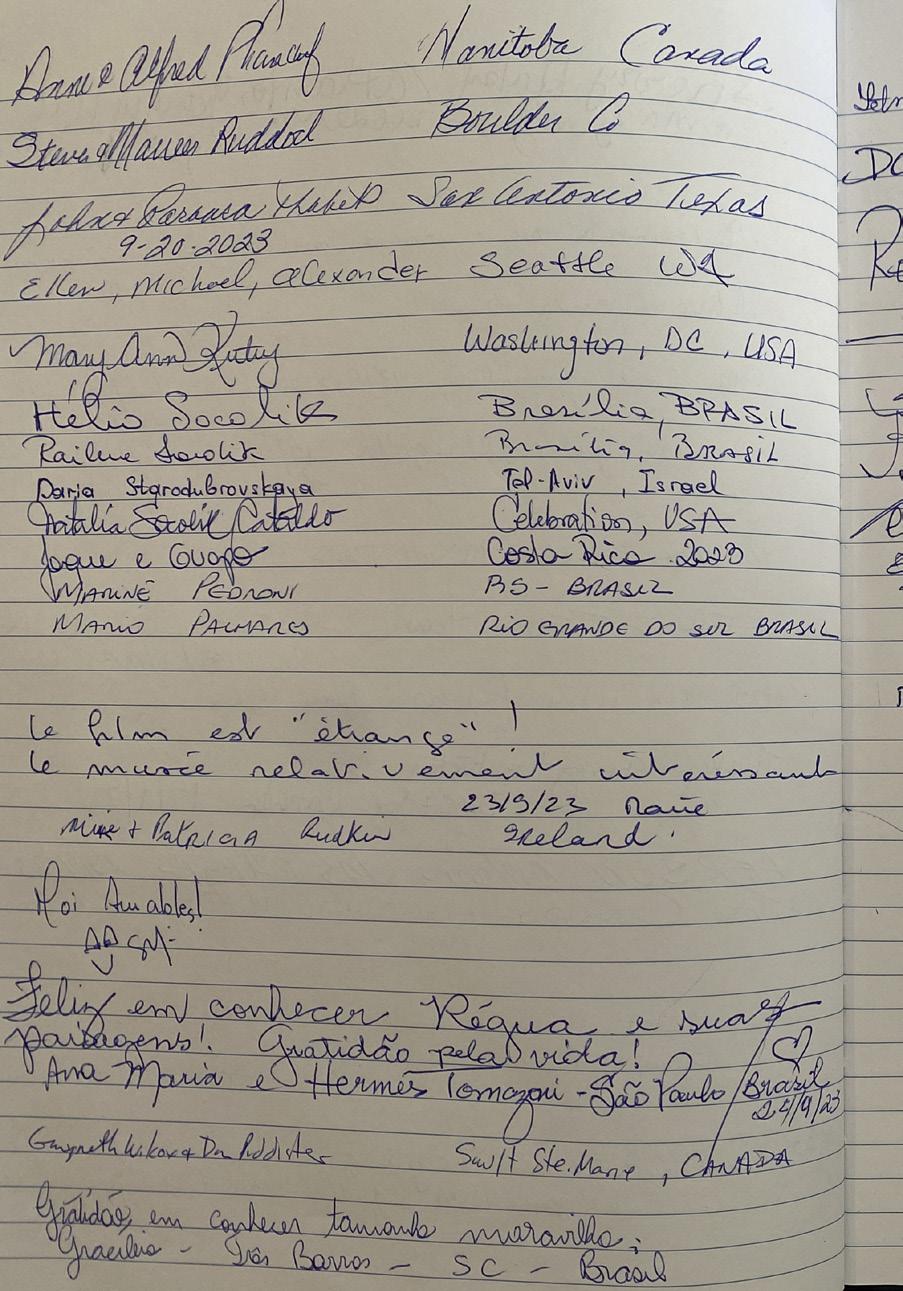 Anne & Alfred Phaneuf Manitoba Canada
Steve & Maureen Ruddock Boulder Co
John & San Antonio Texas
9-20-2023
Ellen, Michael, Alexander Seattle WA
Mary Ann Washington, DC, USA
Hélio Socolik Brasília, BRASIL
Railene Socolik Brasília, BRASIL
Daria Starodubrovskaya Tel-Aviv, Israel
Natalia Socolik Cataldo Celebration, USA
Joque e Guapo Costa Rica 2023
MARINÊ PEDRONI RS - BRASIL
MARIO PALHARES RIO GRANDE DO SUL BRASIL
Le film est "étrange" !
Le musée relativement intéressant
23/9/23
Mike & PATRICIA Rudkin Ireland.
Moi Amables!
Feliz em conhecer Régua e suas
paisagens! Gratidão pela vida!
Ana Maria e Hermes Tomazoni - São Paulo / Brasil
24/9/23
Gwyneth Wilcox & Don Sault Ste. Marie, CANADA
Gratidão, em conhecer tamanha maravilha;
- Três Barras - SC - Brasil